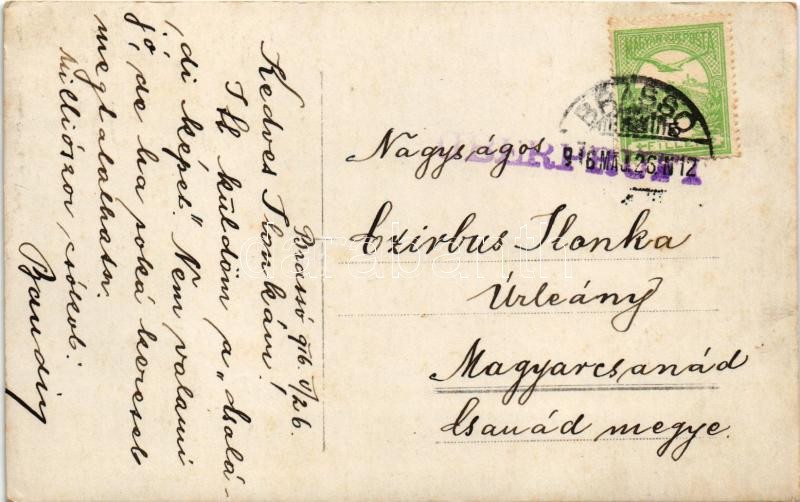 Brassó 916. V/26.
Kedves Ilonkám!
Itt küldöm a „csalá-
di képet." Nem valami
jó, de ha soká keresel
megtalálhatsz.
Milliószor csókol:
MAGYAR KIR. POSTA
FILLÉR
BRASSÓ
916 MÁJ. 26 N12
Nagyságos
Czirbus Ilonka
Úrleány
Magyarcsanád
Csanád megye.
darabanth